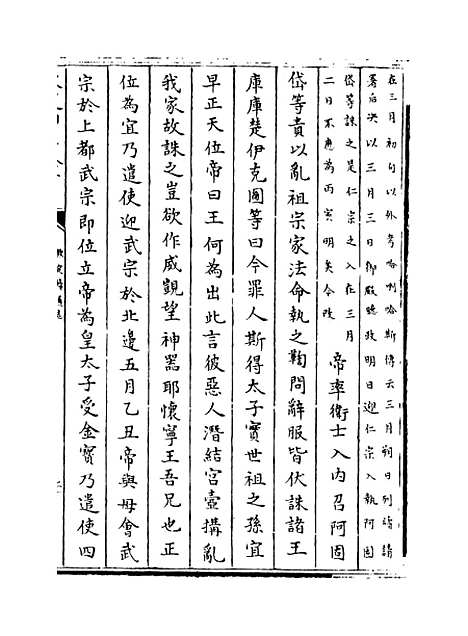 在三月初旬以外考哈喇哈斯傳云三月朔日列牘請
署后决以三月三日御殿聽政明日迎仁宗入執阿固
岱等誅之是仁宗之入在三月
二日不應為丙寅明矣今改
帝率衛士入内召阿固
岱等責以亂祖宗家法命執之鞫問辭服皆伏誅諸王
庫庫楚伊克圖等曰今罪人斯得太子實世祖之孫宜
早正天位帝曰王何為出此言彼惡人潛結宫壼搆亂
我家故誅之豈欲作威覬望神器耶懷寧王吾兄也正
位為宜乃遣使迎武宗於北邊五月乙丑帝與母會武
宗於上都武宗即位立帝為皇太子受金寶乃遣使四